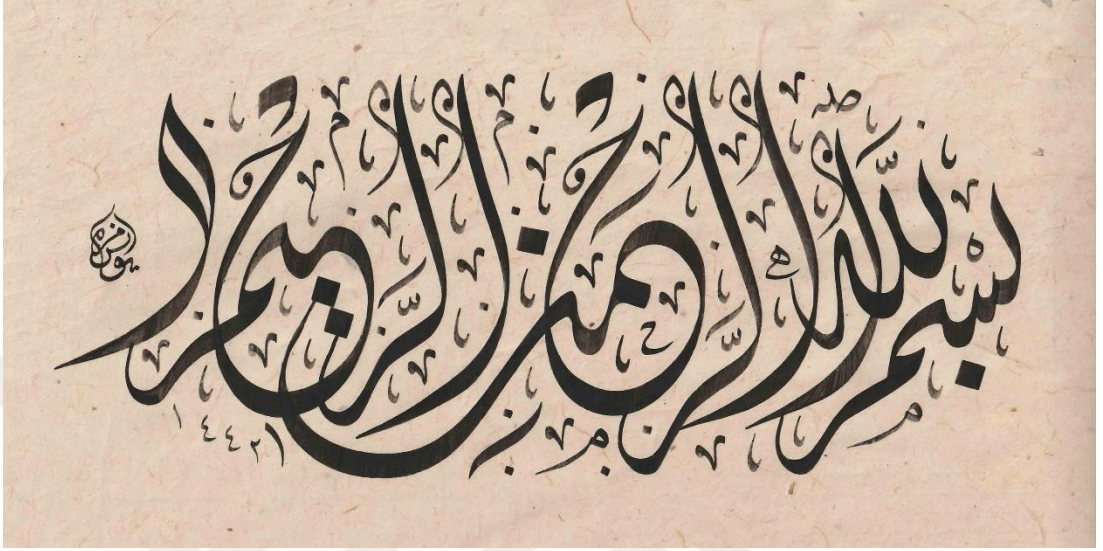 بسم الله الرحمن الرحيم
١٤٤٢